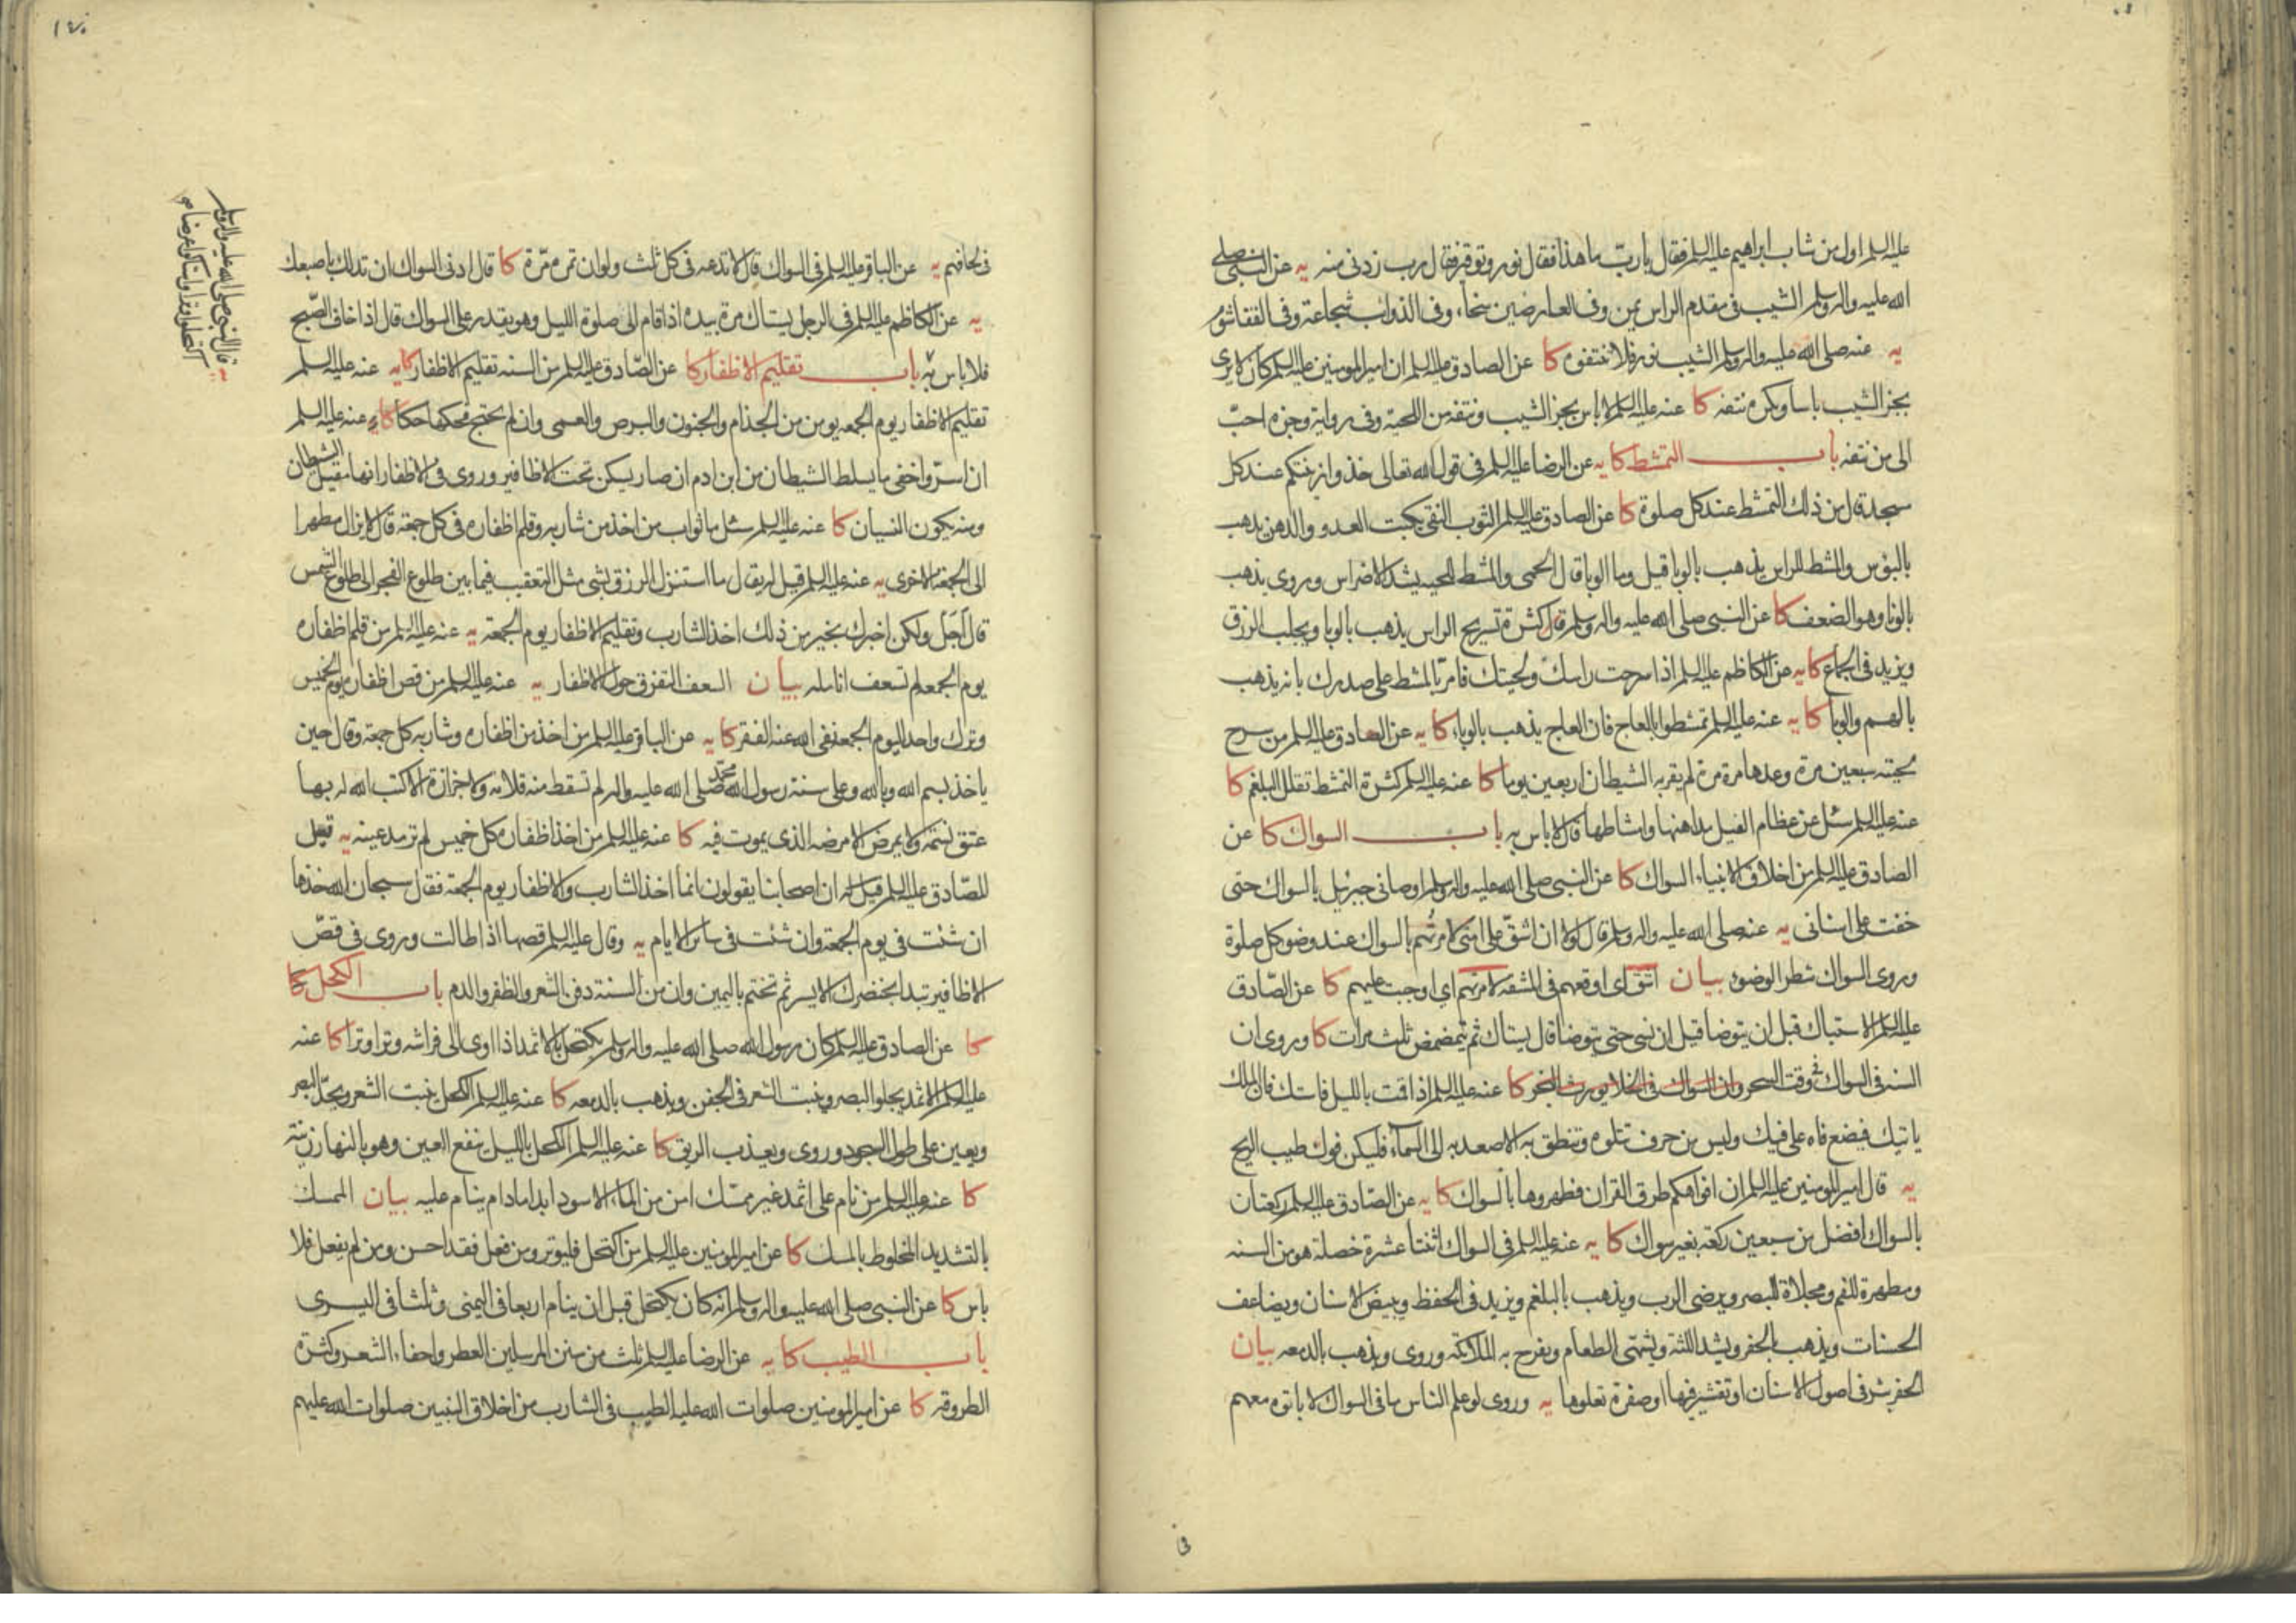 عليه السلم اول من شاب ابراهيم عليه السلم فقال يا ربّ ما هذا فقال نور وتوقير فقال رب زدنى منه يه عن النبى صلى
الله عليه واله وسلم الشيب فى مقدم الراس يمن وفى العارضين سخاء وفى الذوايب شجاعة وفى القفا شوم
يه عنه صلى الله عليه واله وسلم الشيب نور فلا تنتفوه كا عن الصادق عليه السلم ان امير المومنين عليه السلم كان لا يرى
بجز الشيب باسا ويكره نتفه كا عنه عليه السلم لا باس بجز الشيب ونتفه من اللحية وفى رواية وجزه احبّ
الى من نتفه باب التمشط كا يه عن الرضا عليه السلم فى قول الله تعالى خذوا زينتكم عند كل
مسجد قال من ذلك التمشط عند كل صلوة كا عن الصادق عليه السلم الثوب النقى يكبت العدو والدهن يذهب
بالبؤس والمشط للراس يذهب بالوبا قيل وما الوبا قال الحمى والمشط للحية يشد الاضراس وروى يذهب
بالونا وهو الضعف كا عن النبى صلى الله عليه واله وسلم قال كثرة تسريح الراس يذهب بالوبا ويجلب الرزق
ويزيد فى الجماع كا يه عن الكاظم عليه السلم اذا سرحت راسك ولحيتك فامرّ بالمشط على صدرك بانه يذهب
بالهم والوبا كا يه عنه عليه السلم تمشطوا بالعاج فان العاج يذهب بالوباء كا يه عن الصادق عليه السلم من سرح
لحيته سبعين مرة وعدها مرة مرة لم يقربه الشيطان اربعين يوما كا عنه عليه السلم كثرة التمشط تقلل البلغم كا
عنه عليه السلم سئل عن عظام الفيل مداهنها وامشاطها قال لا باس به باب السواك كا عن
الصادق عليه السلم من اخلاق الانبياء السواك كا عن النبى صلى الله عليه واله وسلم اوصانى جبرئيل بالسواك حتى
خفت على اسنانى يه عنه صلى الله عليه واله وسلم قال لولا ان اشقّ على امتى لامرتهم بالسواك عند وضو كل صلوة
وروى السواك شطر الوضوء بيان اشق اى اوقعهم فى المشقه لامرتهم اى اوجبت عليهم كا عن الصّادق
عليه السلم الاستياك قبل ان يتوضا قيل ان نسى حتى يتوضا قال يستاك ثم يتمضمض ثلث مرات كا وروى ان
السنه فى السواك فى وقت السحر وان السواك فى الخلا يورث البخر كا عنه عليه السلم اذا قمت بالليل فاستك فان الملك
ياتيك فيضع فاه على فيك وليس من حرف تتلوه وتنطق به الا صعد به الى السماء فليكن فوك طيب الريح
يه قال امير المومنين عليه السلم ان افواهكم طرق القران فطهروها بالسواك كا يه عن الصّادق عليه السلم ركعتان
بالسواك افضل من سبعين ركعة بغير سواك كا يه عنه عليه السلم فى السواك اثنتا عشرة خصلة هو من السنه
ومطهرة للفم ومجلاة للبصر ويرضى الرب ويذهب بالبلغم ويزيد فى الحفظ ويبيض الاسنان ويضاعف
الحسنات ويذهب بالحفر ويشد اللثة ويشهّى الطعام ويفرح به الملائكة وروى ويذهب بالدمعه بيان
الحفر بثر فى اصول الاسنان او تقشير فيها او صفرة تعلوها يه وروى لو علم الناس ما فى السواك لاباتوه معهم
فى
١٤٠
فى لحافهم يه عن الباقر عليه السلم فى السواك قال لا تدعه فى كل ثلث ولو ان تمره مرّة كا قال ادنى السواك ان تدلك باصبعك
يه عن الكاظم عليه السلم فى الرجل يستاك مرة بيده اذا قام الى صلوة الليل وهو يقدر على السواك قال اذا خاف الصّبح
فلا باس به باب تقليم الاظفار كا عن الصّادق عليه السلم من السنه تقليم الاظفار كا يه عنه عليه السلم
تقليم الاظفار يوم الجمعه يومن من الجذام والجنون والبرص والعمى وان لم تحتج فحكها حكا كا عنه عليه السلم
ان استر واخفى ما يسلط الشيطان من ابن ادم ان صار يسكن تحت الاظافير وروى فى الاظفار انها مقيل الشيطان
ومنه يكون النسيان كا عنه عليه السلم سئل ما ثواب من اخذ من شاربه وقلم اظفاره فى كل جمعة قال لا يزال مطهرا
الى الجمعة الاخرى يه عنه عليه السلم قيل له يقال ما استنزل الرزق بشى مثل التعقيب فيما بين طلوع الفجر الى طلوع الشمس
قال اجل ولكن اخبرك بخير من ذلك اخذ الشارب وتقليم الاظفار يوم الجمعة يه عنه عليه السلم من قلم اظفاره
يوم الجمعه لم تسعف انامله بيان السعف التقزق حول الاظفار يه عنه عليه السلم من قص اظفاره يوم الخميس
وترك واحد اليوم الجمعة نفى الله عنه الفقر كا يه عن الباقر عليه السلم من اخذ من اظفاره وشاربه كل جمعة وقال حين
ياخذ بسم الله وبالله وعلى سنة رسول الله محمد صلى الله عليه واله لم تسقط منه قلامة ولا جزازة الا كتب الله له بها
عتق نسمة ولا يمرض الا مرضه الذى يموت فيه كا عنه عليه السلم من اخذ اظفاره كل خميس لم ترمد عينه يه قيل
للصّادق عليه السلم قيل له ان اصحابنا يقولون انما اخذ الشارب والاظفار يوم الجمعة فقال سبحان الله خذها
ان شئت فى يوم الجمعة وان شئت فى سائر الايام يه وقال عليه السلم قصها اذا طالت وروى فى قصّ
الاظافير تبدا بخنصرك الايسر ثم تختم باليمين وان من السنة دفن الشعر والظفر والدم باب الكحل كا
كا عن الصادق عليه السلم كان رسول الله صلى الله عليه واله وسلم يكتحل بالاثمد اذا اوى الى فراشه وترا وترا كا عنه
عليه السلم الاثمد يجلو البصر وينبت الشعر فى الجفن ويذهب بالدمعه كا عنه عليه السلم الكحل ينبت الشعر ويحدّ البصر
ويعين على طول السجود وروى ويعذب الريق كا عنه عليه السلم الكحل بالليل ينفع العين وهو بالنهار زينة
كا عنه عليه السلم من نام على اثمد غير ممسّك امن من الماء الاسود ابدا ما دام ينام عليه بيان الممسك
بالتشديد المخلوط بالمسك كا عن امير المومنين عليه السلم من اكتحل فليوتر ومن فعل فقد احسن ومن لم يفعل فلا
باس كا عن النبى صلى الله عليه واله وسلم انه كان يكتحل قبل ان ينام اربعا فى اليمنى وثلثا فى اليسرى
باب الطيب كا يه عن الرضا عليه السلم ثلث من سنن المرسلين العطر واحفاء الشعر وكثرة
الطروقه كا عن امير المومنين صلوات الله عليه الطيب فى الشارب من اخلاق النبيين صلوات الله عليهم
يه قال النبى صلى الله عليه واله وسلم
اكتحلوا وترا واستاكوا عرضا